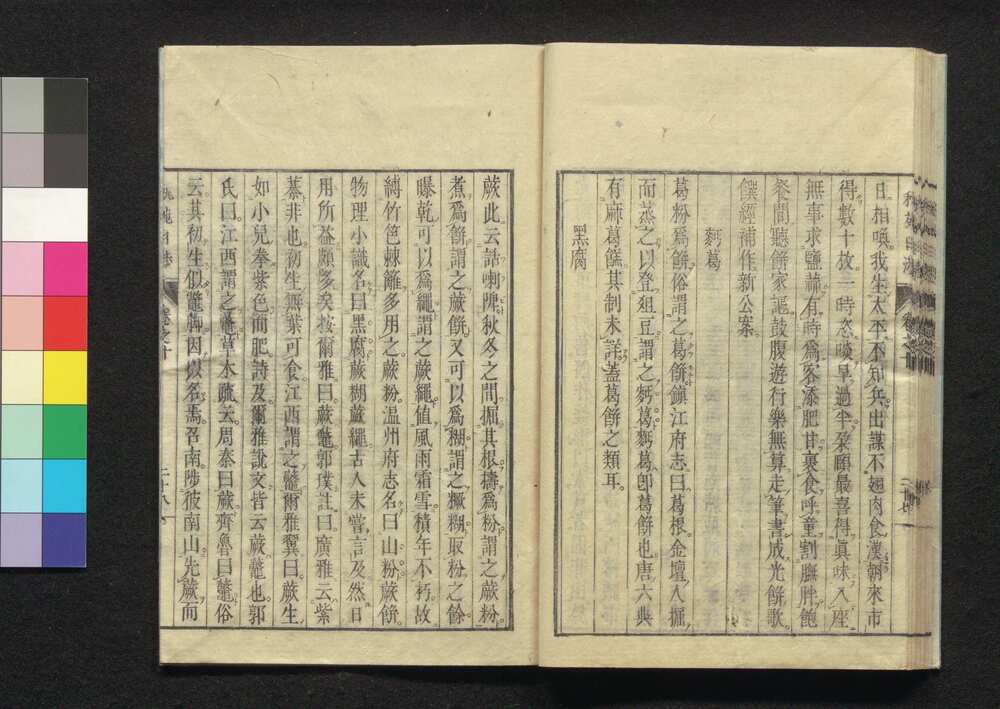 日相喚我生太平不知兵出謀不趐肉食漢朝來市
得數十放一時恣啖早過半朶頤最喜得眞味入座
無事求鹽蒜有時爲客添肥甘裹食呼童割膴胖飽
餐間聽餅家謳鼓腹遊行樂無算走筆書成光餅歌
饌經補作新公案
麪葛
葛粉爲餅俗謂之葛餅鎭江府志曰葛根金壇人掘
而蒸之以登俎豆謂之麪葛麪葛卽葛餅也唐六典
有麻葛饎其制未詳蓋葛餅之類耳
黑腐
蕨此云詰喇陴秋冬之間掘其根擣爲粉謂之蕨粉
煮爲餅謂之蕨餅又可以爲糊謂之蕨糊取粉之餘
曝乾可以爲繩謂之蕨繩値風雨霜雪積年不朽故
縛竹笆棘籬多用之蕨粉温州府志名曰山粉蕨餅
物理小識名曰黑腐蕨糊蕨繩古人未嘗言及然日
用所益頗多矣按爾雅曰蕨虌郭璞註曰廣雅云紫
蘮非也初生無葉可食江西謂之虌爾雅翼曰蕨生
如小兒拳紫色而肥詩及爾雅說文皆云蕨虌也郭
氏曰江西謂之虌草木疏云周秦曰蕨齊魯曰虌俗
云其初生似鼈脚因以名焉召南陟彼南山先蕨而
卷之十
二十八